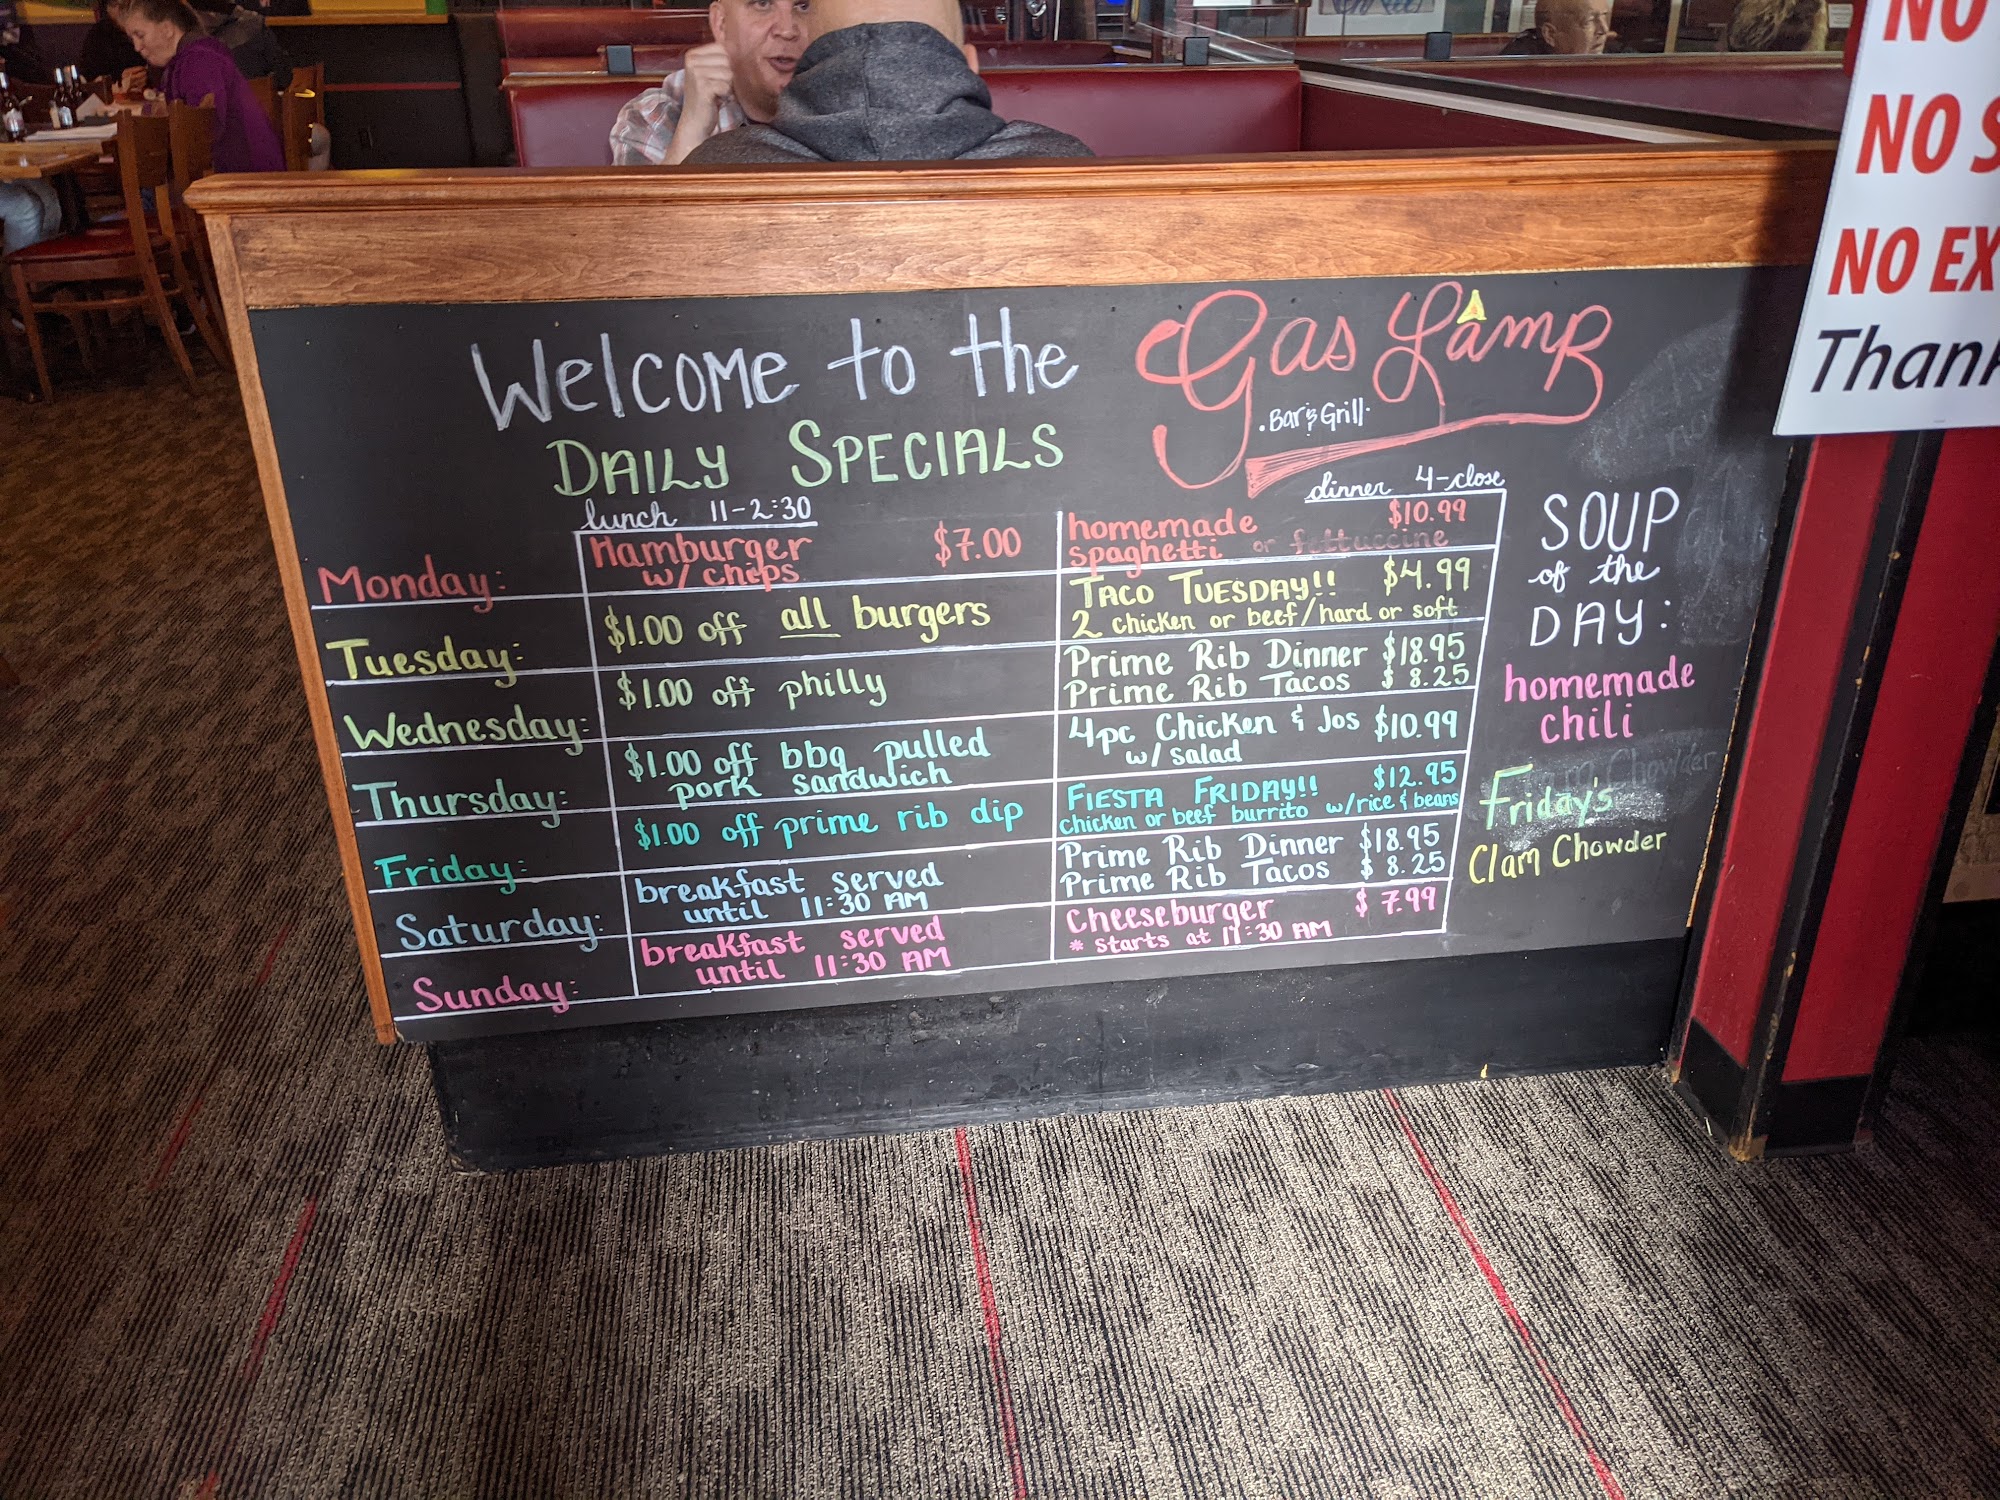 NO
NO S
NO EX
Thank
Welcome to the Gas Lamp
.Bar & Grill.
DAILY SPECIALS
lunch 11-2:30
dinner 4-close
Monday:
Hamburger $7.00
w/ chips
homemade $10.99
spaghetti or fettuccine
Tuesday:
$1.00 off all burgers
TACO TUESDAY!! $4.99
2 chicken or beef/hard or soft
Wednesday:
$1.00 off philly
Prime Rib Dinner $18.95
Prime Rib Tacos $8.25
Thursday:
$1.00 off bbq pulled
pork sandwich
4pc Chicken & Jos $10.99
w/ salad
Friday:
$1.00 off prime rib dip
FIESTA FRIDAY!! $12.95
chicken or beef burrito w/rice & beans
Saturday:
breakfast served
until 11:30 AM
Prime Rib Dinner $18.95
Prime Rib Tacos $8.25
Sunday:
breakfast served
until 11:30 AM
Cheeseburger $7.99
* starts at 11:30 AM
SOUP
of the
DAY:
homemade
chili
Clam Chowder
Friday's
Clam Chowder